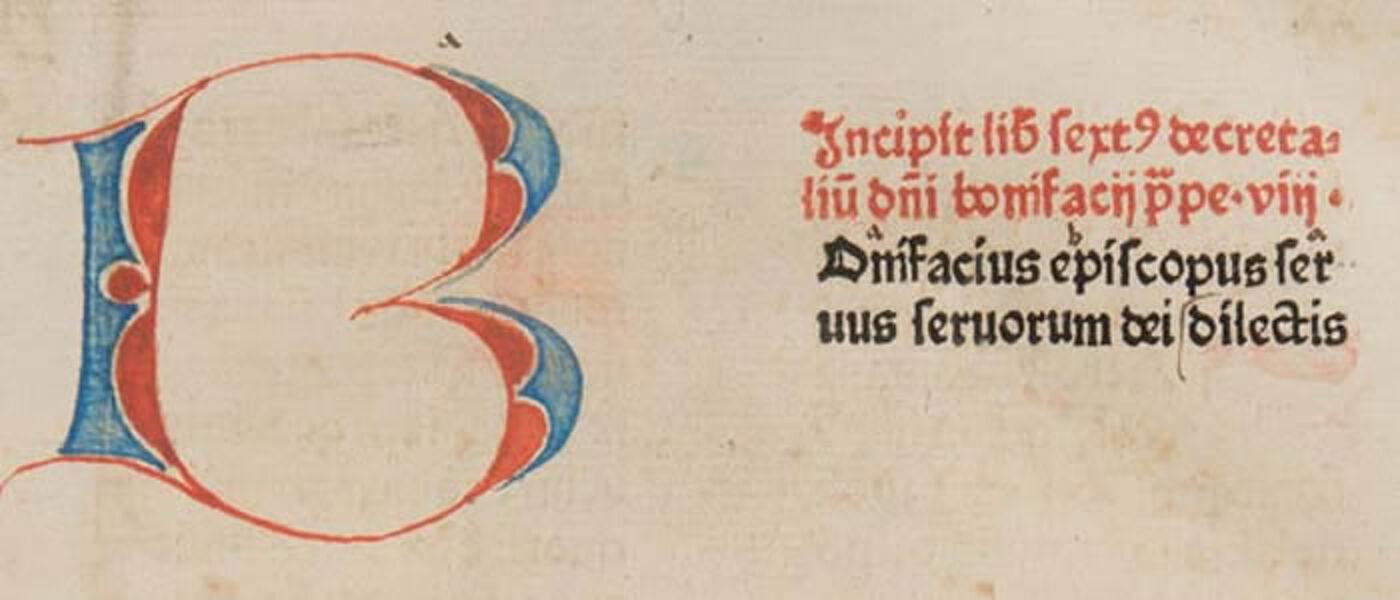 B
Incipit lib̄ sextꝰ decreta⸗
liū dn̄i bonifacij p̄pe·viij·
Onifacius episcopus ser
uus seruorum dei dilectis